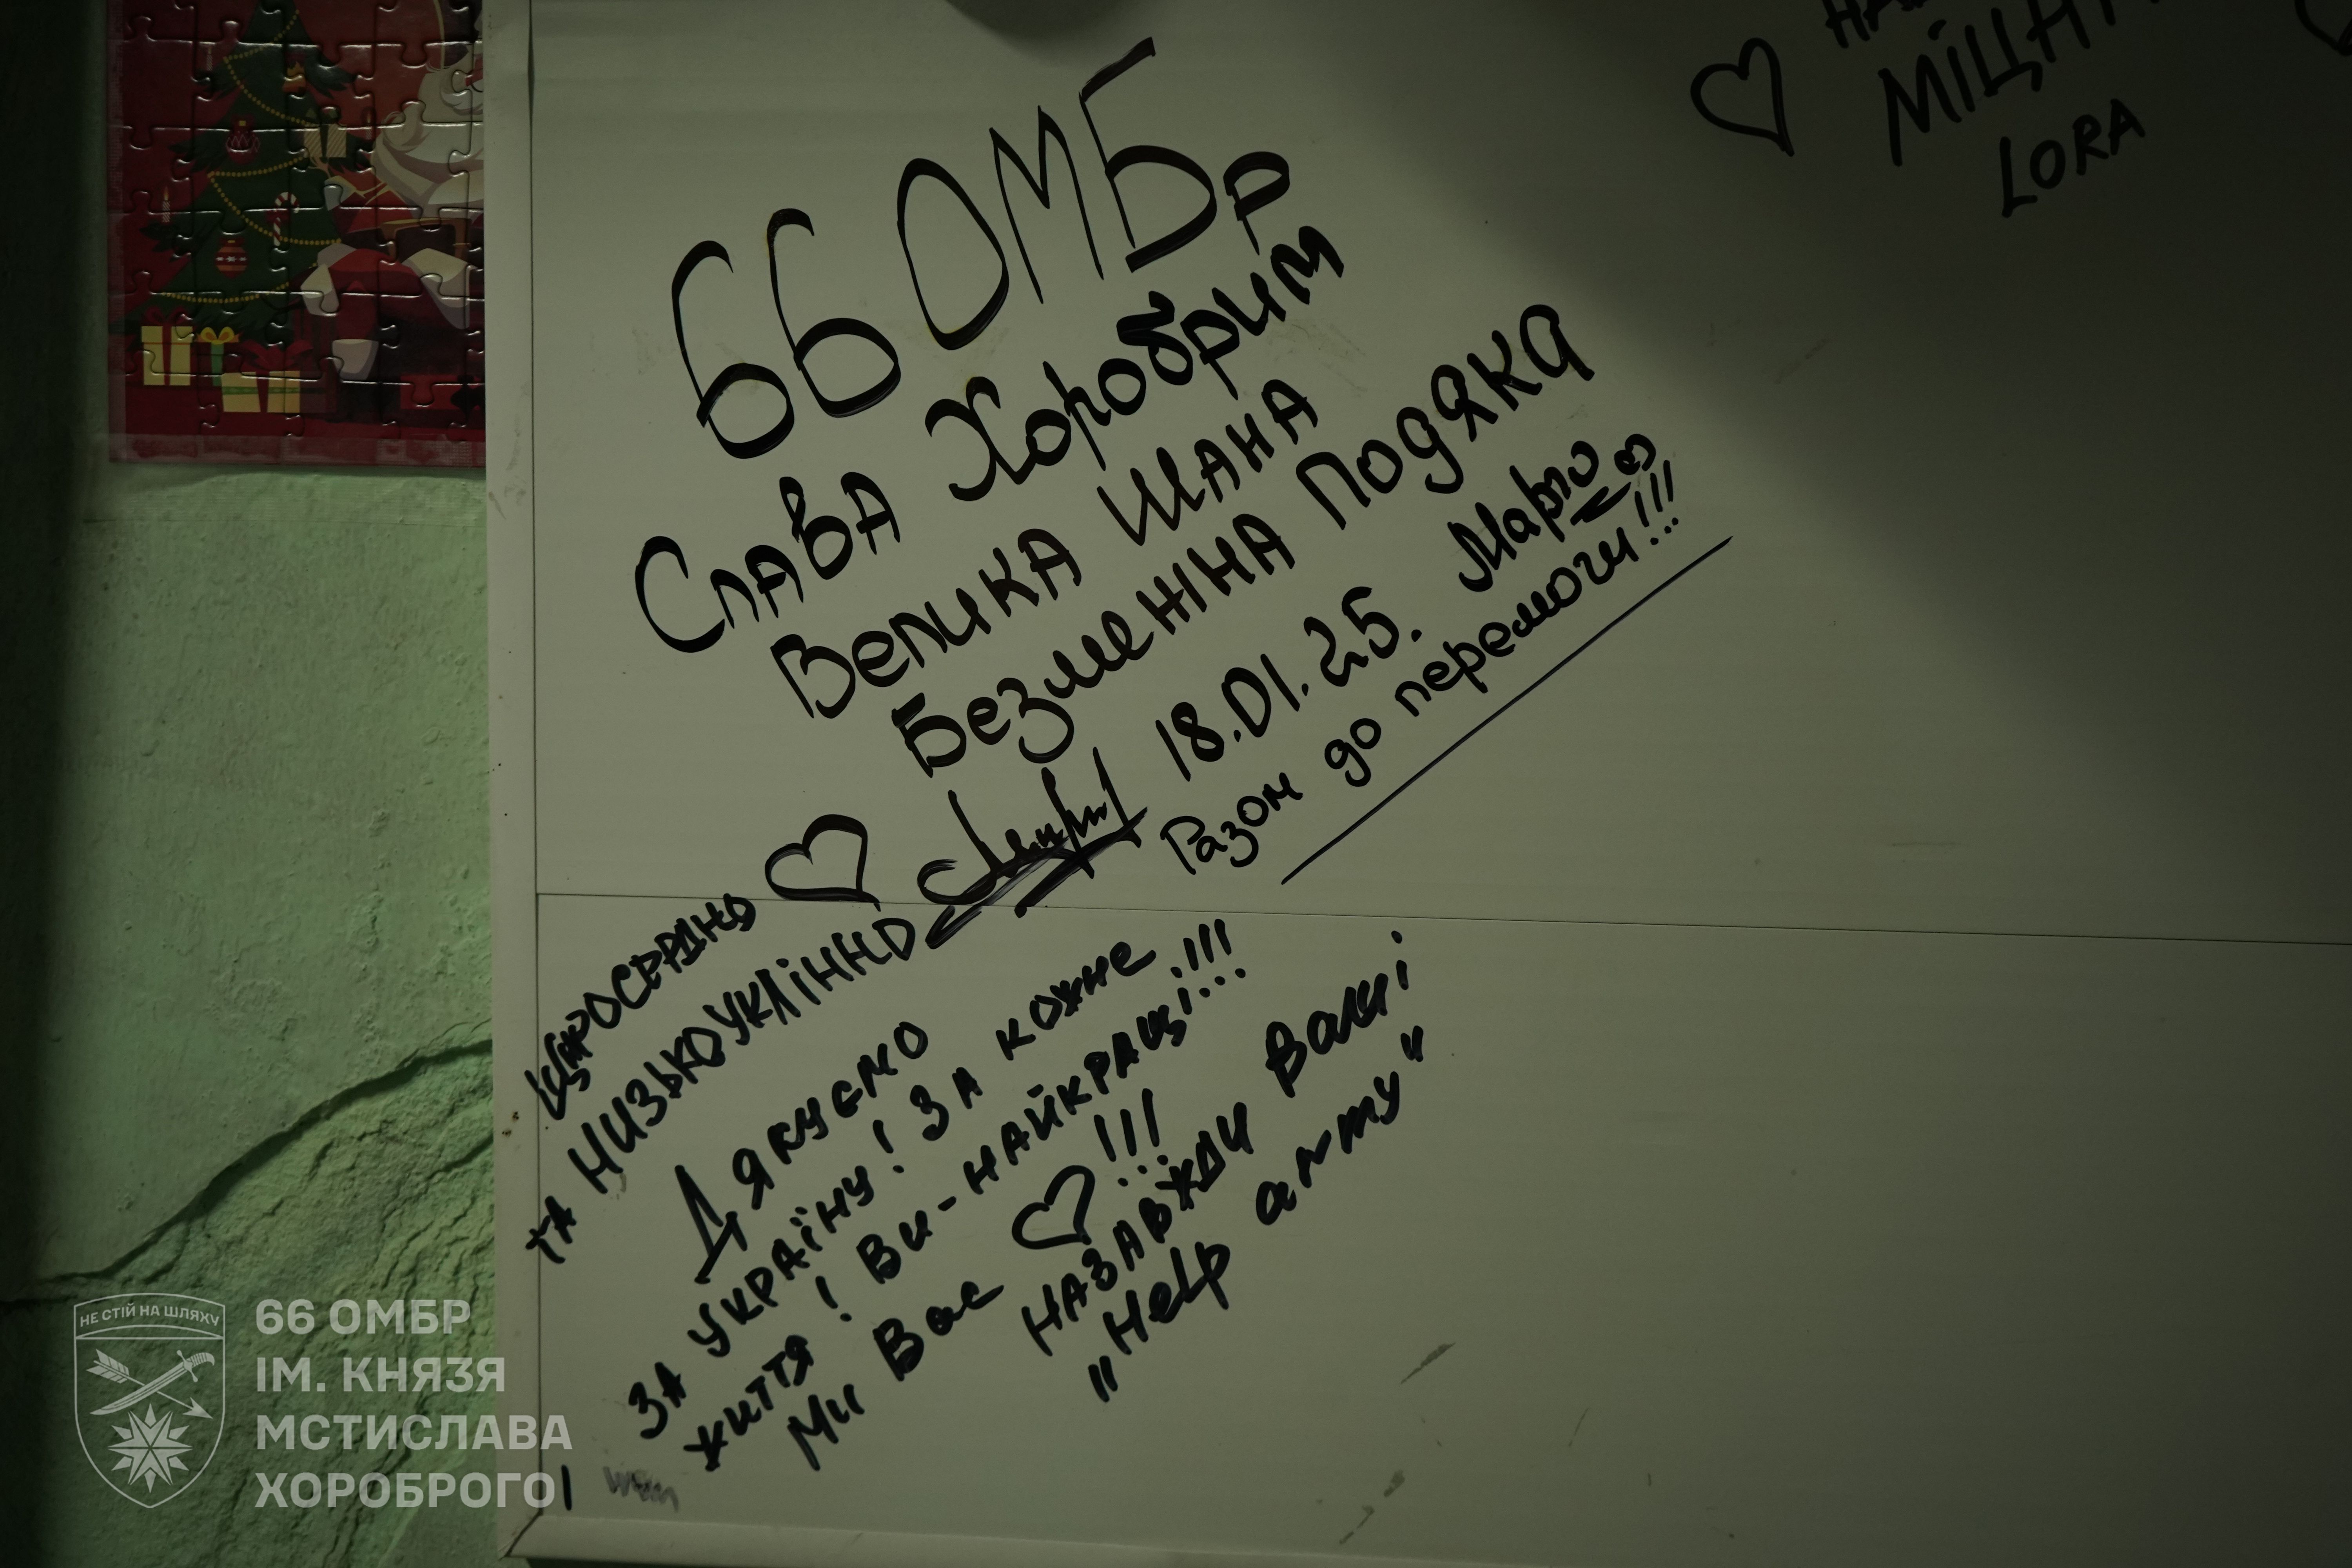 МІЦН
LORA
66 ОМБр
Слава Хоробрим
Велика Шана
Безмежна Подяка
18.01.25. Марго
Разом до перемоги!!!
Щиросердно
та низькоуклінно
Дякуємо
за Україну! За кожне
життя! Ви-найкращі!!!
Ми Вас !!!
назавжди Ваші
"Help army"
НЕ СТІЙ НА ШЛЯХУ
66 ОМБР
ІМ. КНЯЗЯ
МСТИСЛАВА
ХОРОБРОГО